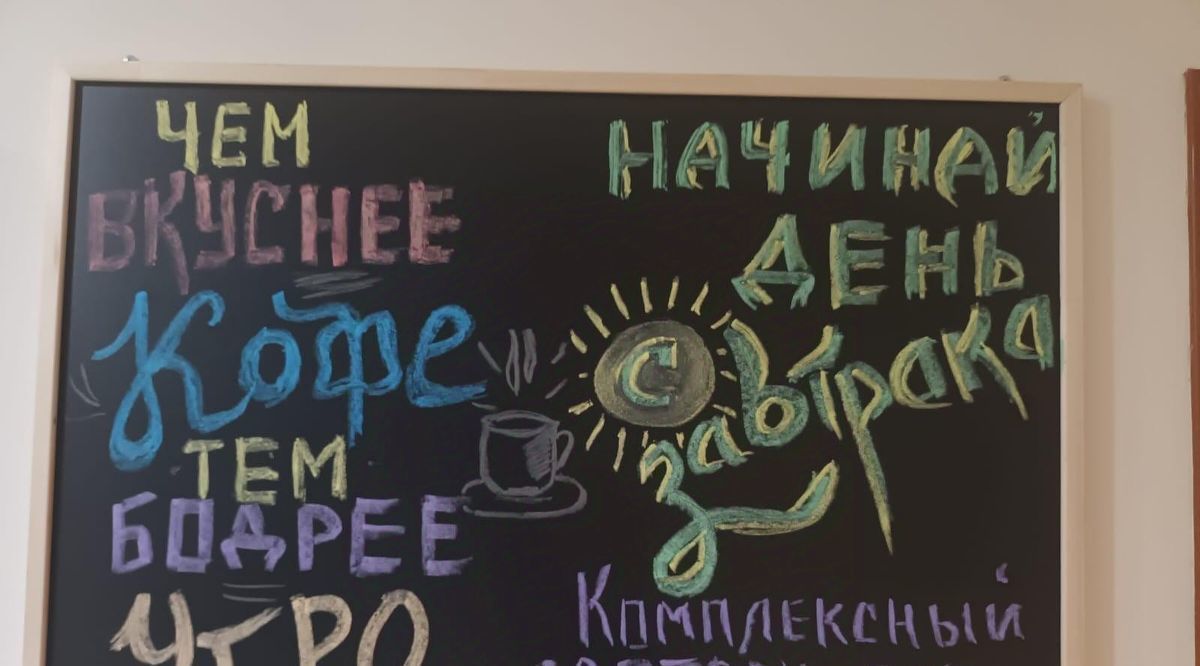 ЧЕМ
ВКУСНЕЕ
Кофе
ТЕМ
БОДРЕЕ
УТРО
НАЧИНАЙ
ДЕНЬ
С
завтрака
Комплексный